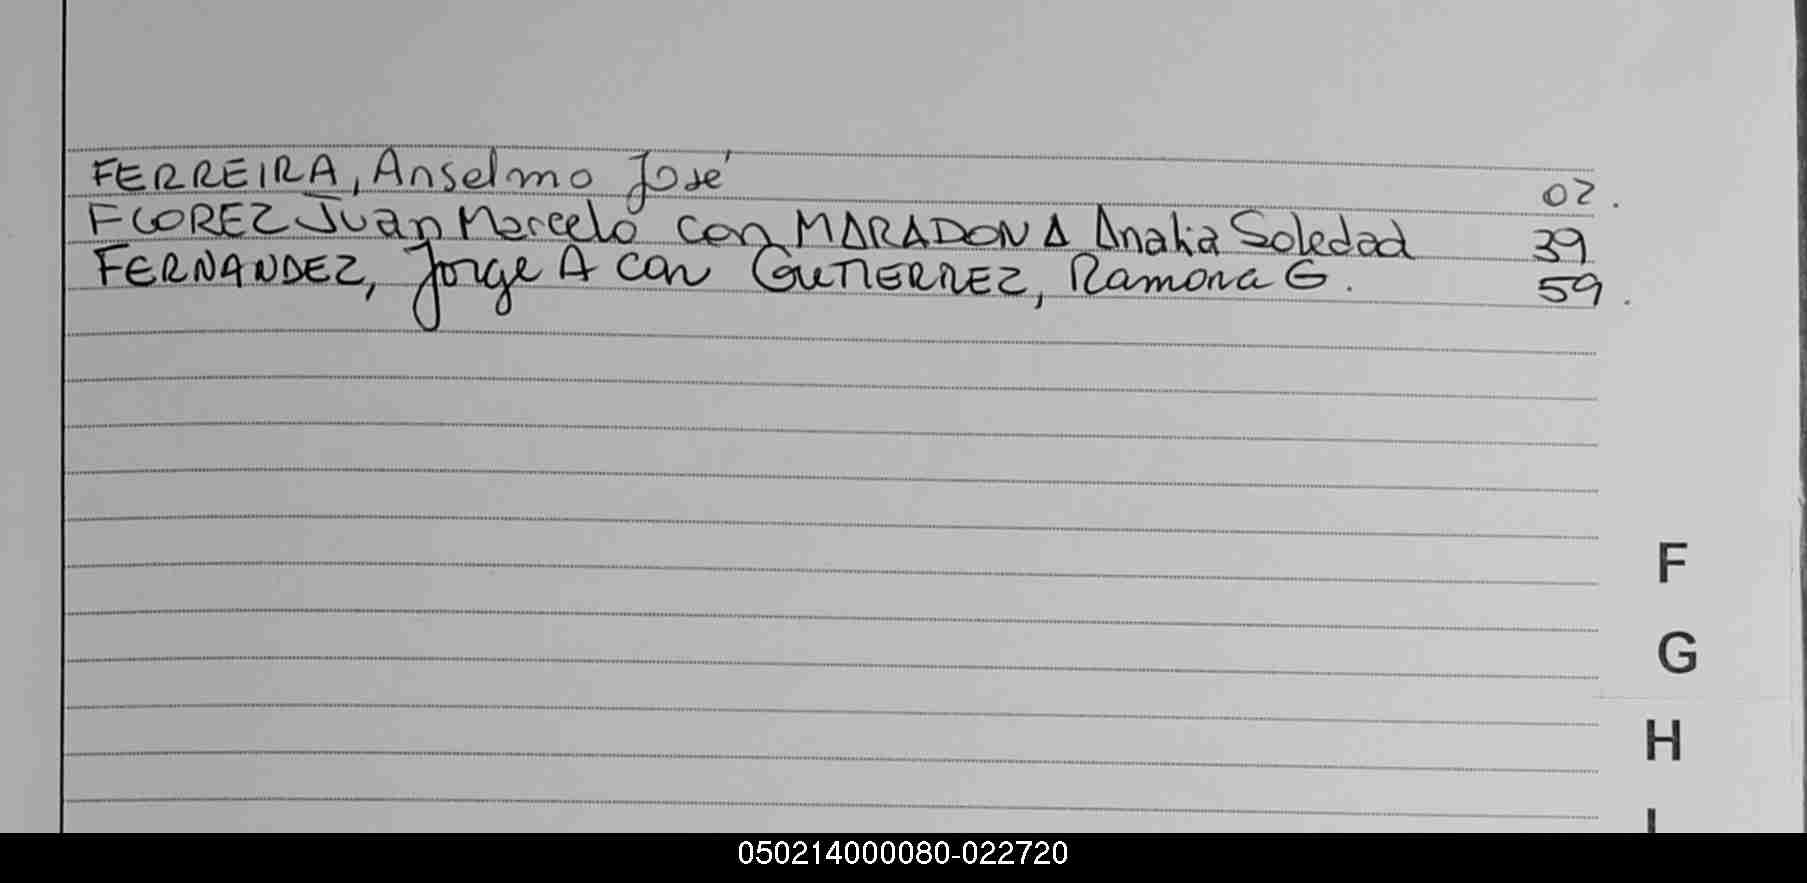 FERREIRA, Anselmo José 02.
FLOREZ Juan Marcelo con MARADONA Analia Soledad 39
FERNANDEZ, Jorge A con GUTIERREZ, Ramona G. 59.
F
G
H
I
050214000080-022720